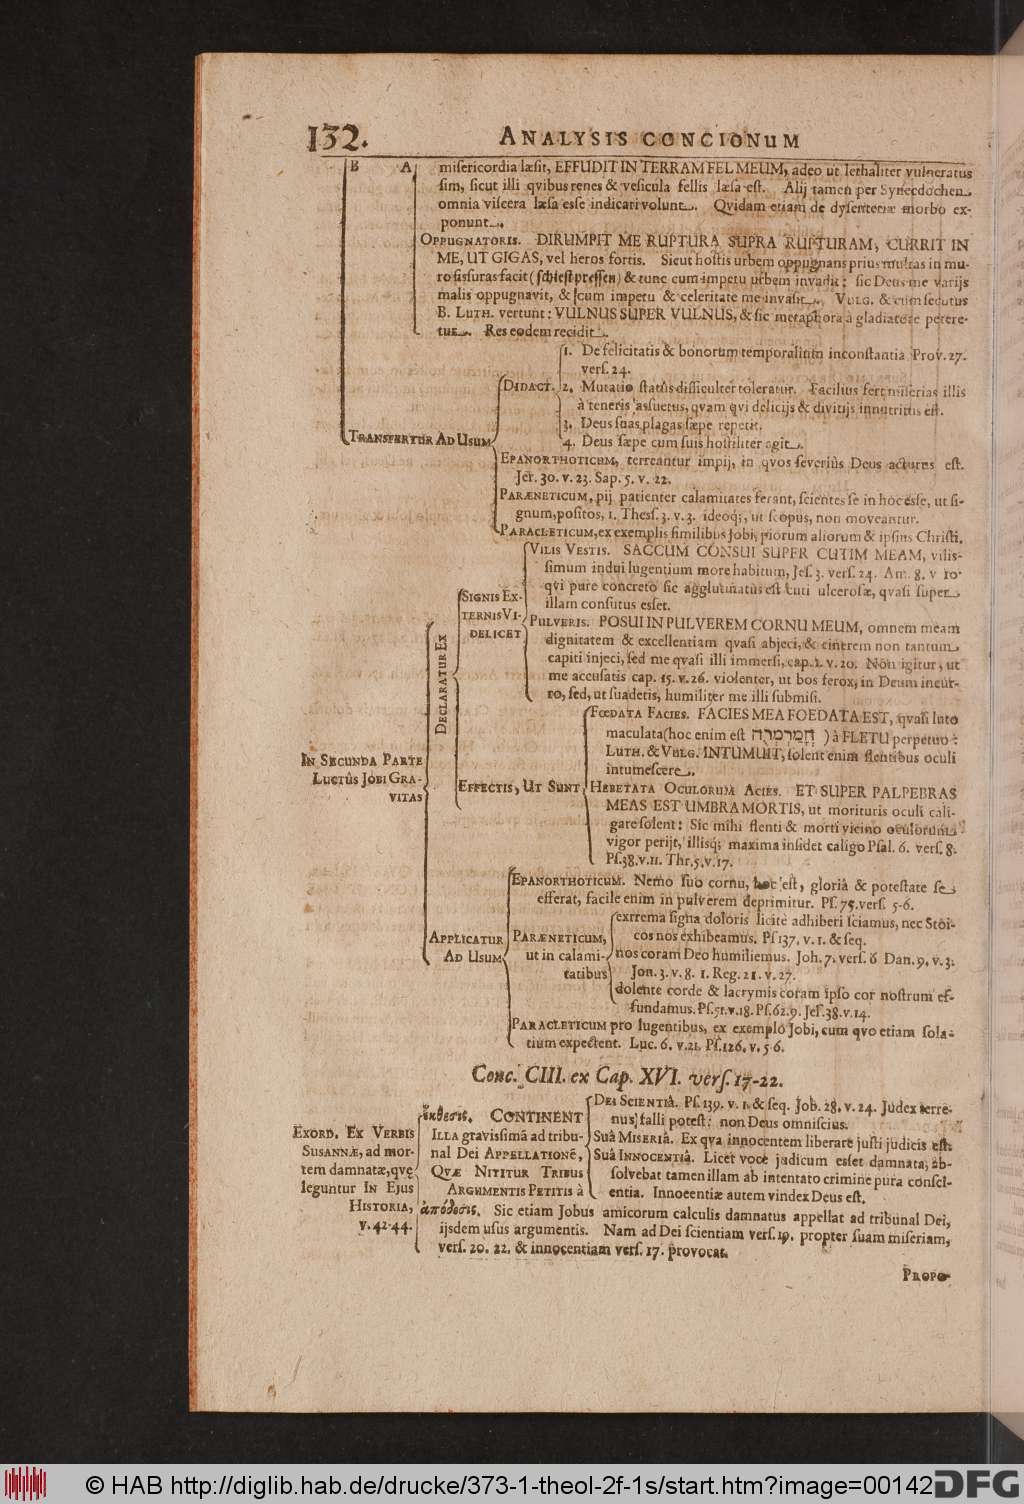 132.
ANALYSIS CONCIONUM
B A misericordia læsit, EFFUDIT IN TERRAM FEL MEUM, adeo ut lethaliter vulneratus
sim, sicut illi qvibus renes & vesicula fellis læsa est. Alij tamen per Synecdochen
omnia viscera læsa esse indicari volunt. Qvidam etiam de dysenteriæ morbo ex-
ponunt.
OPPUGNATORIS. DIRUMPIT ME RUPTURA SUPRA RUPTURAM, CURRIT IN
ME, UT GIGAS, vel heros fortis. Sicut hostis urbem oppugnans prius multas in mu-
ro fissuras facit (schiest pressen) & tunc cum impetu urbem invadit: sic Deus me varijs
malis oppugnavit, & cum impetu & celeritate me invasit. VULG. & cum secutus
B. LUTH. vertunt: VULNUS SUPER VULNUS, & sic metaphora à gladiatore petere-
tur. Res eodem recidit.
TRANSFERTUR AD USUM
DIDACT.
1. De felicitatis & bonorum temporalium inconstantia Prov. 27.
vers. 24.
2. Mutatio statûs difficulter toleratur. Facilius fert miserias illis
à teneris assuetus, qvam qvi delicijs & divitijs innutritus est.
3. Deus suas plagas sæpe repetit.
4. Deus sæpe cum suis hostiliter agit.
EPANORTHOTICUM, terreantur impij, in qvos severiùs Deus acturus est.
Jer. 30. v. 23. Sap. 5. v. 22.
PARÆNETICUM, pij patienter calamitates ferant, scientes se in hoc esse, ut si-
gnum, positos, 1. Thess. 3. v. 3. ideoq;, ut scopus, non moveantur.
PARACLETICUM, ex exemplis similibus Jobi, piorum aliorum & ipsius Christi.
IN SECUNDA PARTE
LUCTÛS JOBI GRA-
VITAS
DECLARATUR EX
SIGNIS EX-
TERNIS VI-
DELICET
VILIS VESTIS. SACCUM CONSUI SUPER CUTIM MEAM, vilis-
simum indui lugentium more habitum, Jes. 3. vers. 24. Am. 8. v 10.
qvi pure concreto sic agglutinatus est cuti ulcerosæ, qvasi super
illam consutus esset.
PULVERIS. POSUI IN PULVEREM CORNU MEUM, omnem meam
dignitatem & excellentiam qvasi abjeci, & cinerem non tantum
capiti injeci, sed me qvasi illi immersi, cap. 2. v. 20. Non igitur, ut
me accusatis cap. 15. v. 26. violenter, ut bos ferox, in Deum incur-
ro, sed, ut suadetis, humiliter me illi submisi.
EFFECTIS, UT SUNT
FŒDATA FACIES. FACIES MEA FOEDATA EST, qvasi luto
maculata (hoc enim est חֳמַרְמְרָה ) à FLETU perpetuo:
LUTH. & VULG. INTUMUIT, solent enim flentibus oculi
intumescere.
HEBETATA OCULORUM ACIES. ET SUPER PALPEBRAS
MEAS EST UMBRA MORTIS, ut morituris oculi cali-
gare solent: Sic mihi flenti & morti vicino oculorum
vigor perijt, illisq; maxima insidet caligo Psal. 6. vers. 8.
Ps. 38. v. 11. Thr. 5. v. 17.
APPLICATUR
AD USUM
EPANORTHOTICUM. Nemo suo cornu, hoc est, gloriâ & potestate se
efferat, facile enim in pulverem deprimitur. Ps. 75. vers. 5-6.
PARÆNETICUM,
ut in calami-
tatibus
extrema signa doloris licitè adhiberi sciamus, nec Stoi-
cos nos exhibeamus. Ps 137. v. 1. & seq.
nos coram Deo humiliemus. Joh. 7. vers. 6 Dan. 9. v. 3.
Jon. 3. v. 8. 1. Reg. 21. v. 27.
dolente corde & lacrymis coram ipso cor nostrum ef-
fundamus. Ps. 51. v. 18. Ps. 62. 9. Jes. 38. v. 14.
PARACLETICUM pro lugentibus, ex exemplo Jobi, cum qvo etiam sola-
tium expectent. Luc. 6. v. 21. Ps. 126. v. 5 6.
Conc. CIII. ex Cap. XVI. vers. 17-22.
EXORD. EX VERBIS
SUSANNÆ, ad mor-
tem damnatæ, qvę
leguntur IN EJUS
HISTORIA,
v. 42-44.
ἔκθεσις. CONTINENT
ILLA gravissimâ ad tribu-
nal Dei APPELLATIONĒ,
QVÆ NITITUR TRIBUS
ARGUMENTIS PETITIS à
DEI SCIENTIÂ. Ps. 139. v. 1. & seq. Job. 28. v. 24. Judex terre-
nus falli potest: non Deus omniscius.
Suâ MISERIÂ. Ex qva innocentem liberare justi judicis est.
Suâ INNOCENTIÂ. Licet voce judicum esset damnata, ab-
solvebat tamen illam ab intentato crimine pura consci-
entia. Innocentiæ autem vindex Deus est.
ἀπόδοσις. Sic etiam Jobus amicorum calculis damnatus appellat ad tribunal Dei,
ijsdem usus argumentis. Nam ad Dei scientiam vers. 19. propter suam miseriam,
vers. 20. 22. & innocentiam vers. 17. provocat.
PROPO-
© HAB http://diglib.hab.de/drucke/373-1-theol-2f-1s/start.htm?image=00142
DFG